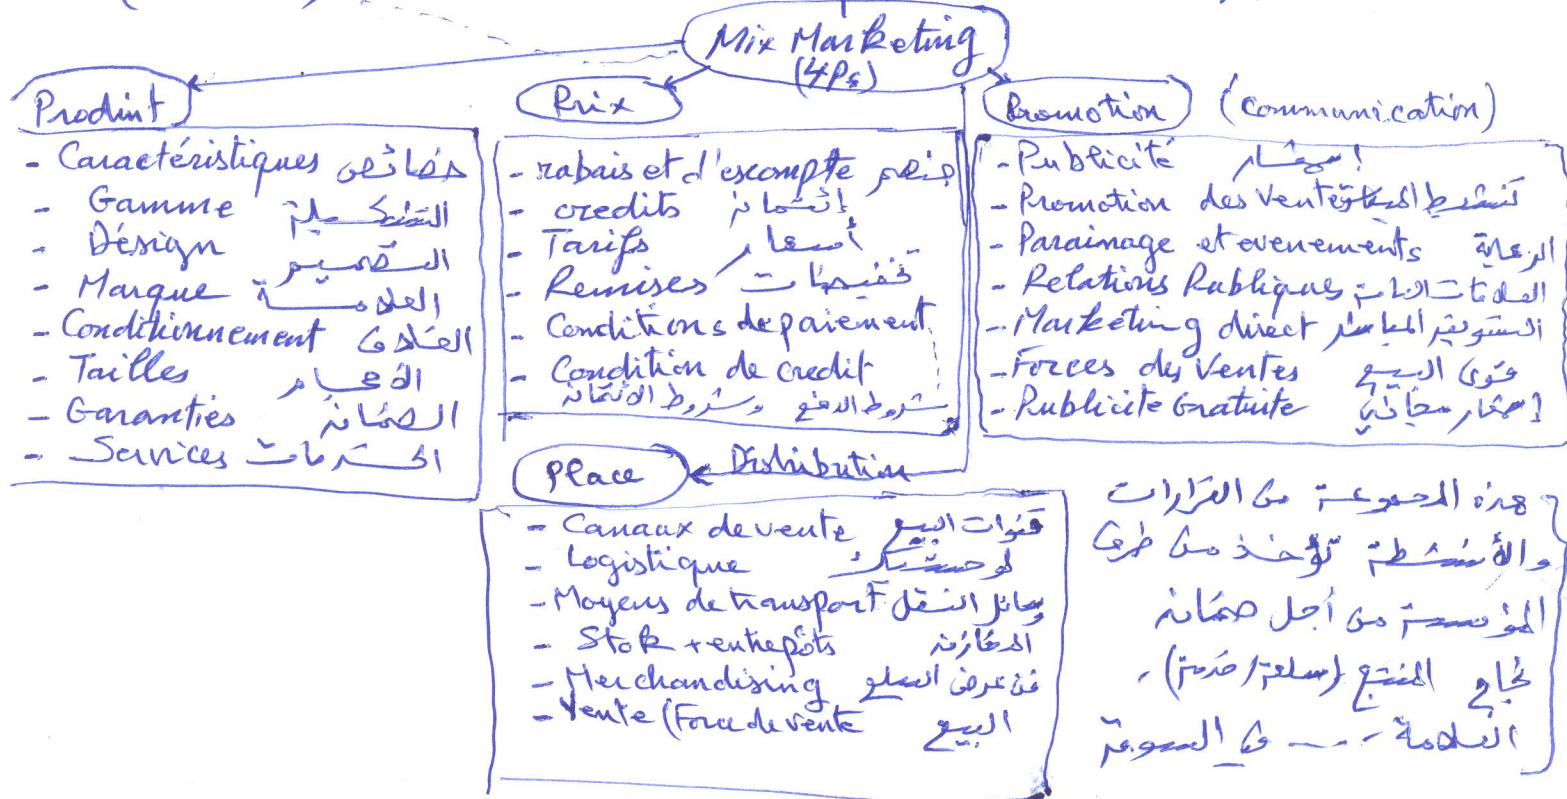 Mix Marketing
(4Ps)
Produit
- Caractéristiques خصائص
- Gamme التشكيلة
- Désign التصميم
- Marque العلامة
- Conditionnement الغلاف
- Tailles الأحجام
- Garanties الضمان
- Services الخدمات
Prix
- rabais et d'escompte خصم
- credits إئتمان
- Tarifs أسعار
- Remises تخفيضات
- Conditions de paiement
- Condition de credit
شروط الدفع وشروط الائتمان
Promotion (communication)
- Publicité إشهار
- Promotion des Ventes تنشيط المبيعات
- Parainage et evenements الرعاية
- Relations Publiques العلاقات العامة
- Marketing direct التسويق المباشر
- Forces des Ventes قوى البيع
- Publicite Gratuite إشهار مجاني
Place Distribution
- Canaux de vente قنوات البيع
- Logistique لوجستيك
- Moyens de transport وسائل النقل
- Stok + entrepôts المخازن
- Merchandising فن عرض السلع
- Vente (Force de vente البيع
هذه المجموعة من القرارات
والأنشطة تؤخذ من طرف
المؤسسة من أجل ضمان
نجاح المنتج (سلعة/خدمة)،
العلامة ---- في السوق